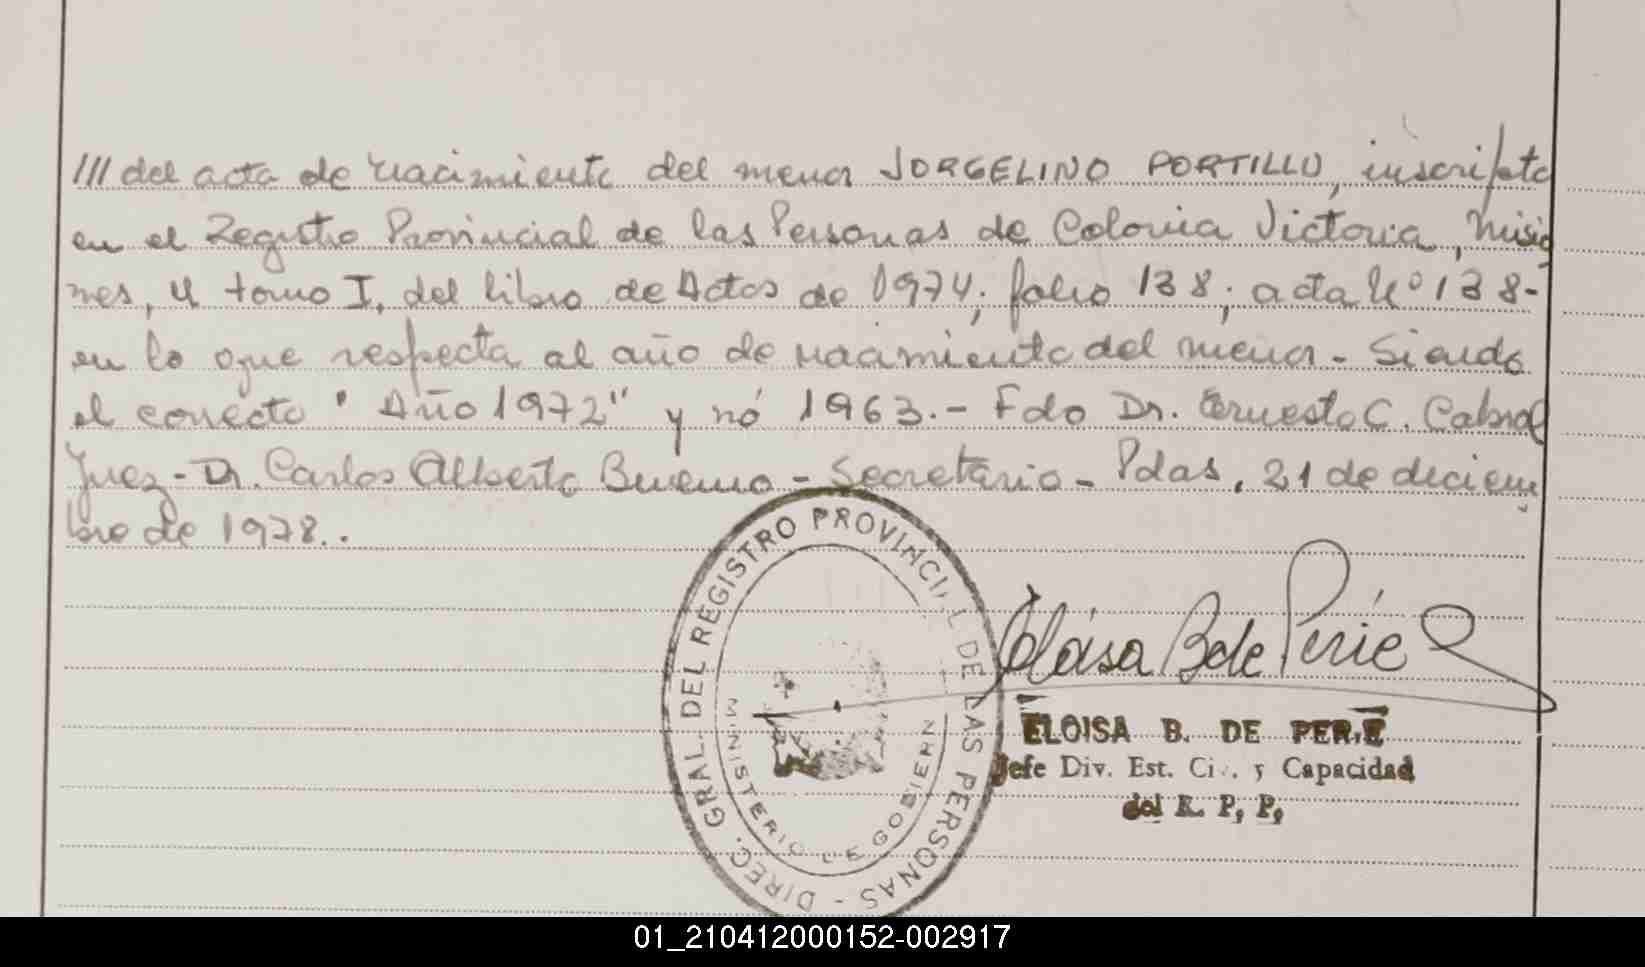 /// del acta de nacimiento del menor JORGELINO PORTILLO, inscripta
en el Registro Provincial de las Personas de Colonia Victoria, Misio
nes, tomo I, del libro de Actas de 1974; folio 138; acta Nº 138-
en lo que respecta al año de nacimiento del menor - Siendo
el correcto "Año 1972" y nó 1963.- Fdo Dr. Ernesto C. Cabral
Juez - Dr. Carlos Alberto Bueno - Secretario - Pdas, 21 de diciem
bre de 1978..
DIREC. GRAL. DEL REGISTRO PROVINCI L DE LAS PERSONAS -
MINISTERIO DE GOBIERN
Eloisa B de Perié
ELOISA B. DE PERIE
Jefe Div. Est. Ci . y Capacidad
del R. P. P.
01_210412000152-002917